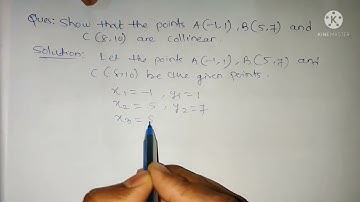 Ques: Show that the points A(-1,1), B(5,7) and
C(8,10) are collinear.
Solution: Let the points A(-1,1), B(5,7) and
C(8,10) be the given points.
x₁ = -1, y₁ = 1
x₂ = 5, y₂ = 7
x₃ =
KINEMASTER